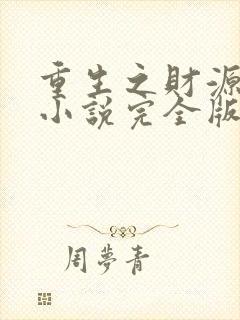 重生之財源
小說完全版
周夢青